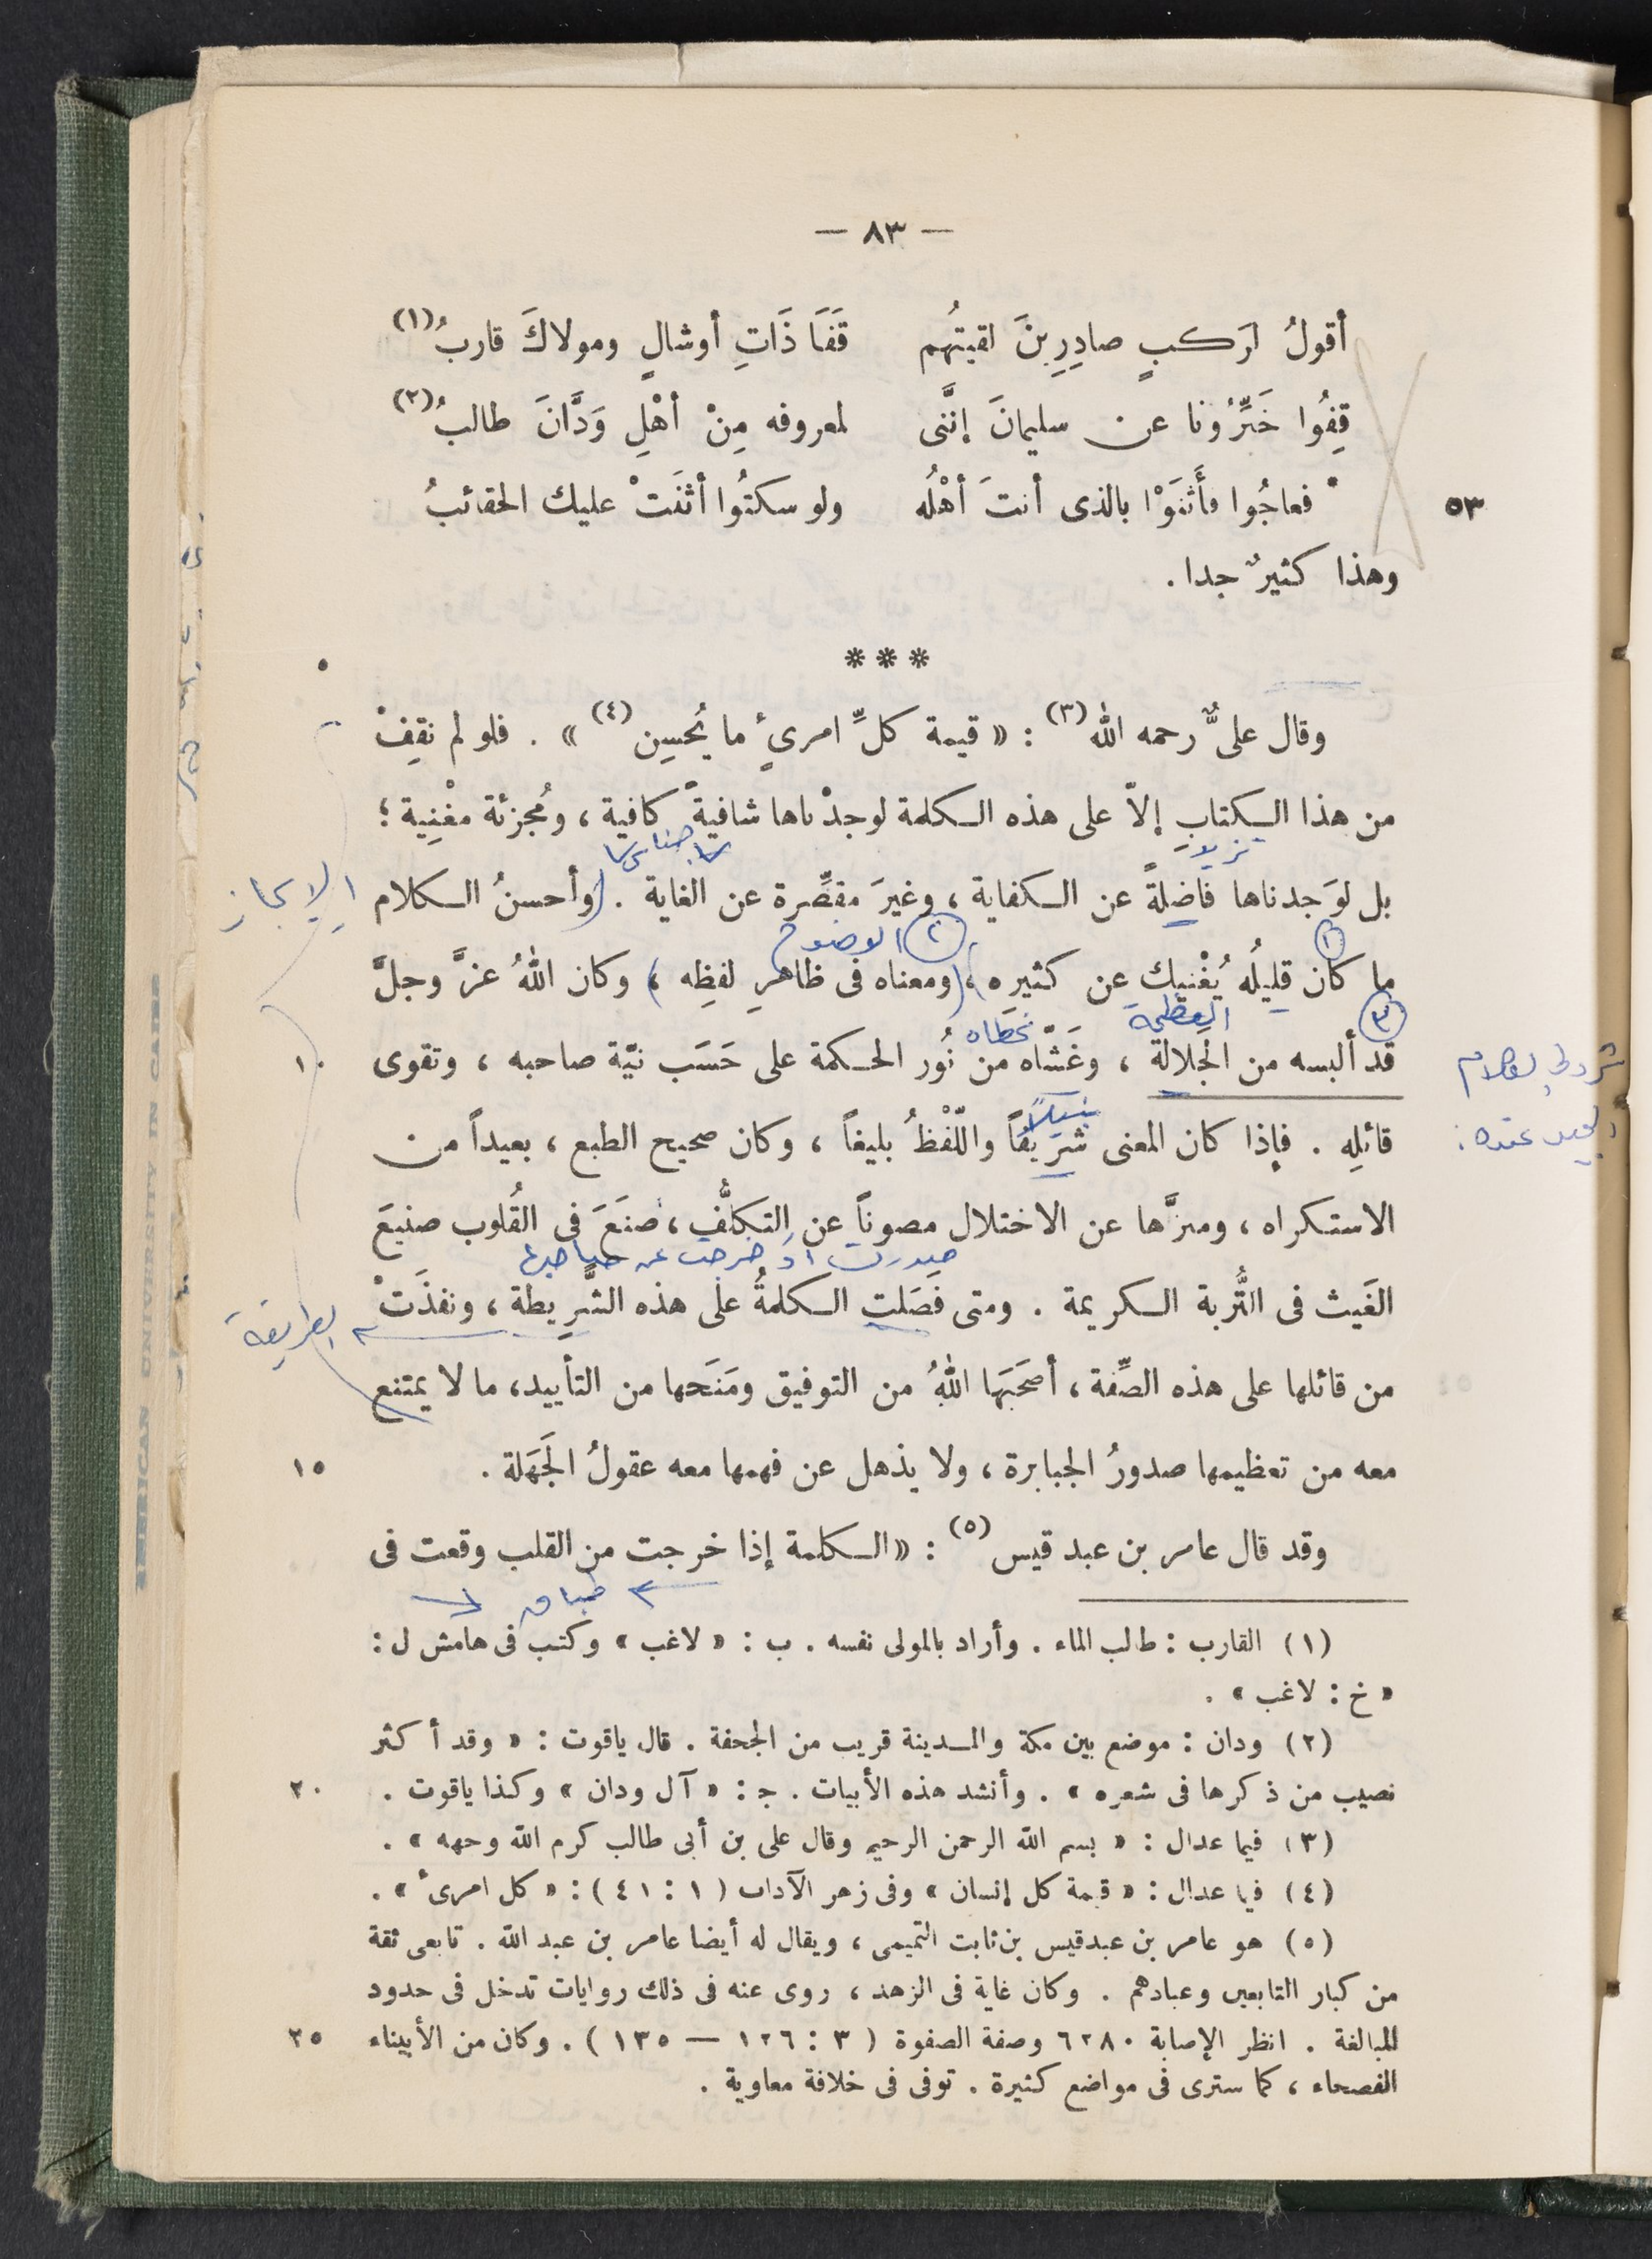 — ٨٣ —
أقولُ لرَكبٍ صادِرِينَ لقيتُهم قَفَا ذَاتِ أوشالٍ ومولاكَ قاربُ(١)
قِفُوا خَبِّرُونا عن سليمانَ إنَّنى لمعروفه مِنْ أهْلِ وَدَّانَ طالبُ(٢)
٥٣ * فعاجُوا فأَثنَوْا بالذى أنتَ أهْلُه ولو سكتُوا أثنَتْ عليك الحقائبُ
وهذا كثيرٌ جدا .
*** ٥
وقال علىٌّ رحمه اللّٰه(٣) : « قيمة كلِّ امرئٍ ما يُحسِن(٤) » . فلو لم نقِفْ
من هذا الكتابِ إلاّ على هذه الكلمة لوجدْناها شافيةً كافية ، ومُجزئة مغْنِية ؛
تزيد جناس
بل لوَجدناها فاضِلةً عن الكفاية ، وغيرَ مقصِّرة عن الغاية . (وأحسنُ الكلام الإيجاز
١ ٢ الوضوح
ما كان قليلُه يُغْنيك عن كثيره ، (ومعناه فى ظاهرِ لفظِه ) ، وكان اللّٰهُ عزَّ وجلَّ
٣ العظمة غطاه
قد ألبسه من الجلالة ، وغَشّاه من نُور الحكمة على حَسَب نيّة صاحبه ، وتقوى ١٠
شروط الكلام
الجيد عنده :
نبيلاً
قائلِه . فإذا كان المعنى شريفاً واللّفْظُ بليغاً ، وكان صحيح الطبع ، بعيداً من
الاستكراه ، ومنزَّها عن الاختلال مصوناً عن التكلُّف ، صنَعَ فى القُلوب صنيعَ
صدرت أو خرجت عن صاحبها
الغَيث فى التُّربة الكريمة . ومتى فَصَلت الكلمةُ على هذه الشَّرِيطة ، ونفذَتْ الطريقة
من قائلها على هذه الصِّفة ، أصحَبَهَا اللّٰهُ من التوفيق ومَنَحها من التأييد ، ما لا يمتنع
معه من تعظيمها صدورُ الجبابرة ، ولا يذهل عن فهمها معه عقولُ الجَهَلة . ١٥
وقد قال عامر بن عبد قيس(٥) : « الكلمة إذا خرجت من القلب وقعت فى
طباق
(١) القارب : طالب الماء . وأراد بالمولى نفسه . ب : « لاغب » وكتب فى هامش ل :
« خ : لاغب » .
(٢) ودان : موضع بين مكة والمدينة قريب من الجحفة . قال ياقوت : « وقد أكثر
نصيب من ذكرها فى شعره » . وأنشد هذه الأبيات . ج : « آل ودان » وكذا ياقوت . ٢٠
(٣) فيما عدا ل : « بسم الله الرحمن الرحيم وقال على بن أبى طالب كرم الله وجهه » .
(٤) فيما عدا ل : « قيمة كل إنسان » وفى زهر الآداب ( ١ : ٤١ ) : « كل امرئ » .
(٥) هو عامر بن عبدقيس بن ثابت التميمى ، ويقال له أيضا عامر بن عبد الله . تابعى ثقة
من كبار التابعين وعبادهم . وكان غاية فى الزهد ، روى عنه فى ذلك روايات تدخل فى حدود
المبالغة . انظر الإصابة ٦٢٨٠ وصفة الصفوة ( ٣ : ١٢٦ — ١٣٥ ) . وكان من الأبيناء ٢٥
الفصحاء ، كما سترى فى مواضع كثيرة . توفى فى خلافة معاوية .
AMERICAN UNIVERSITY IN CAIRO